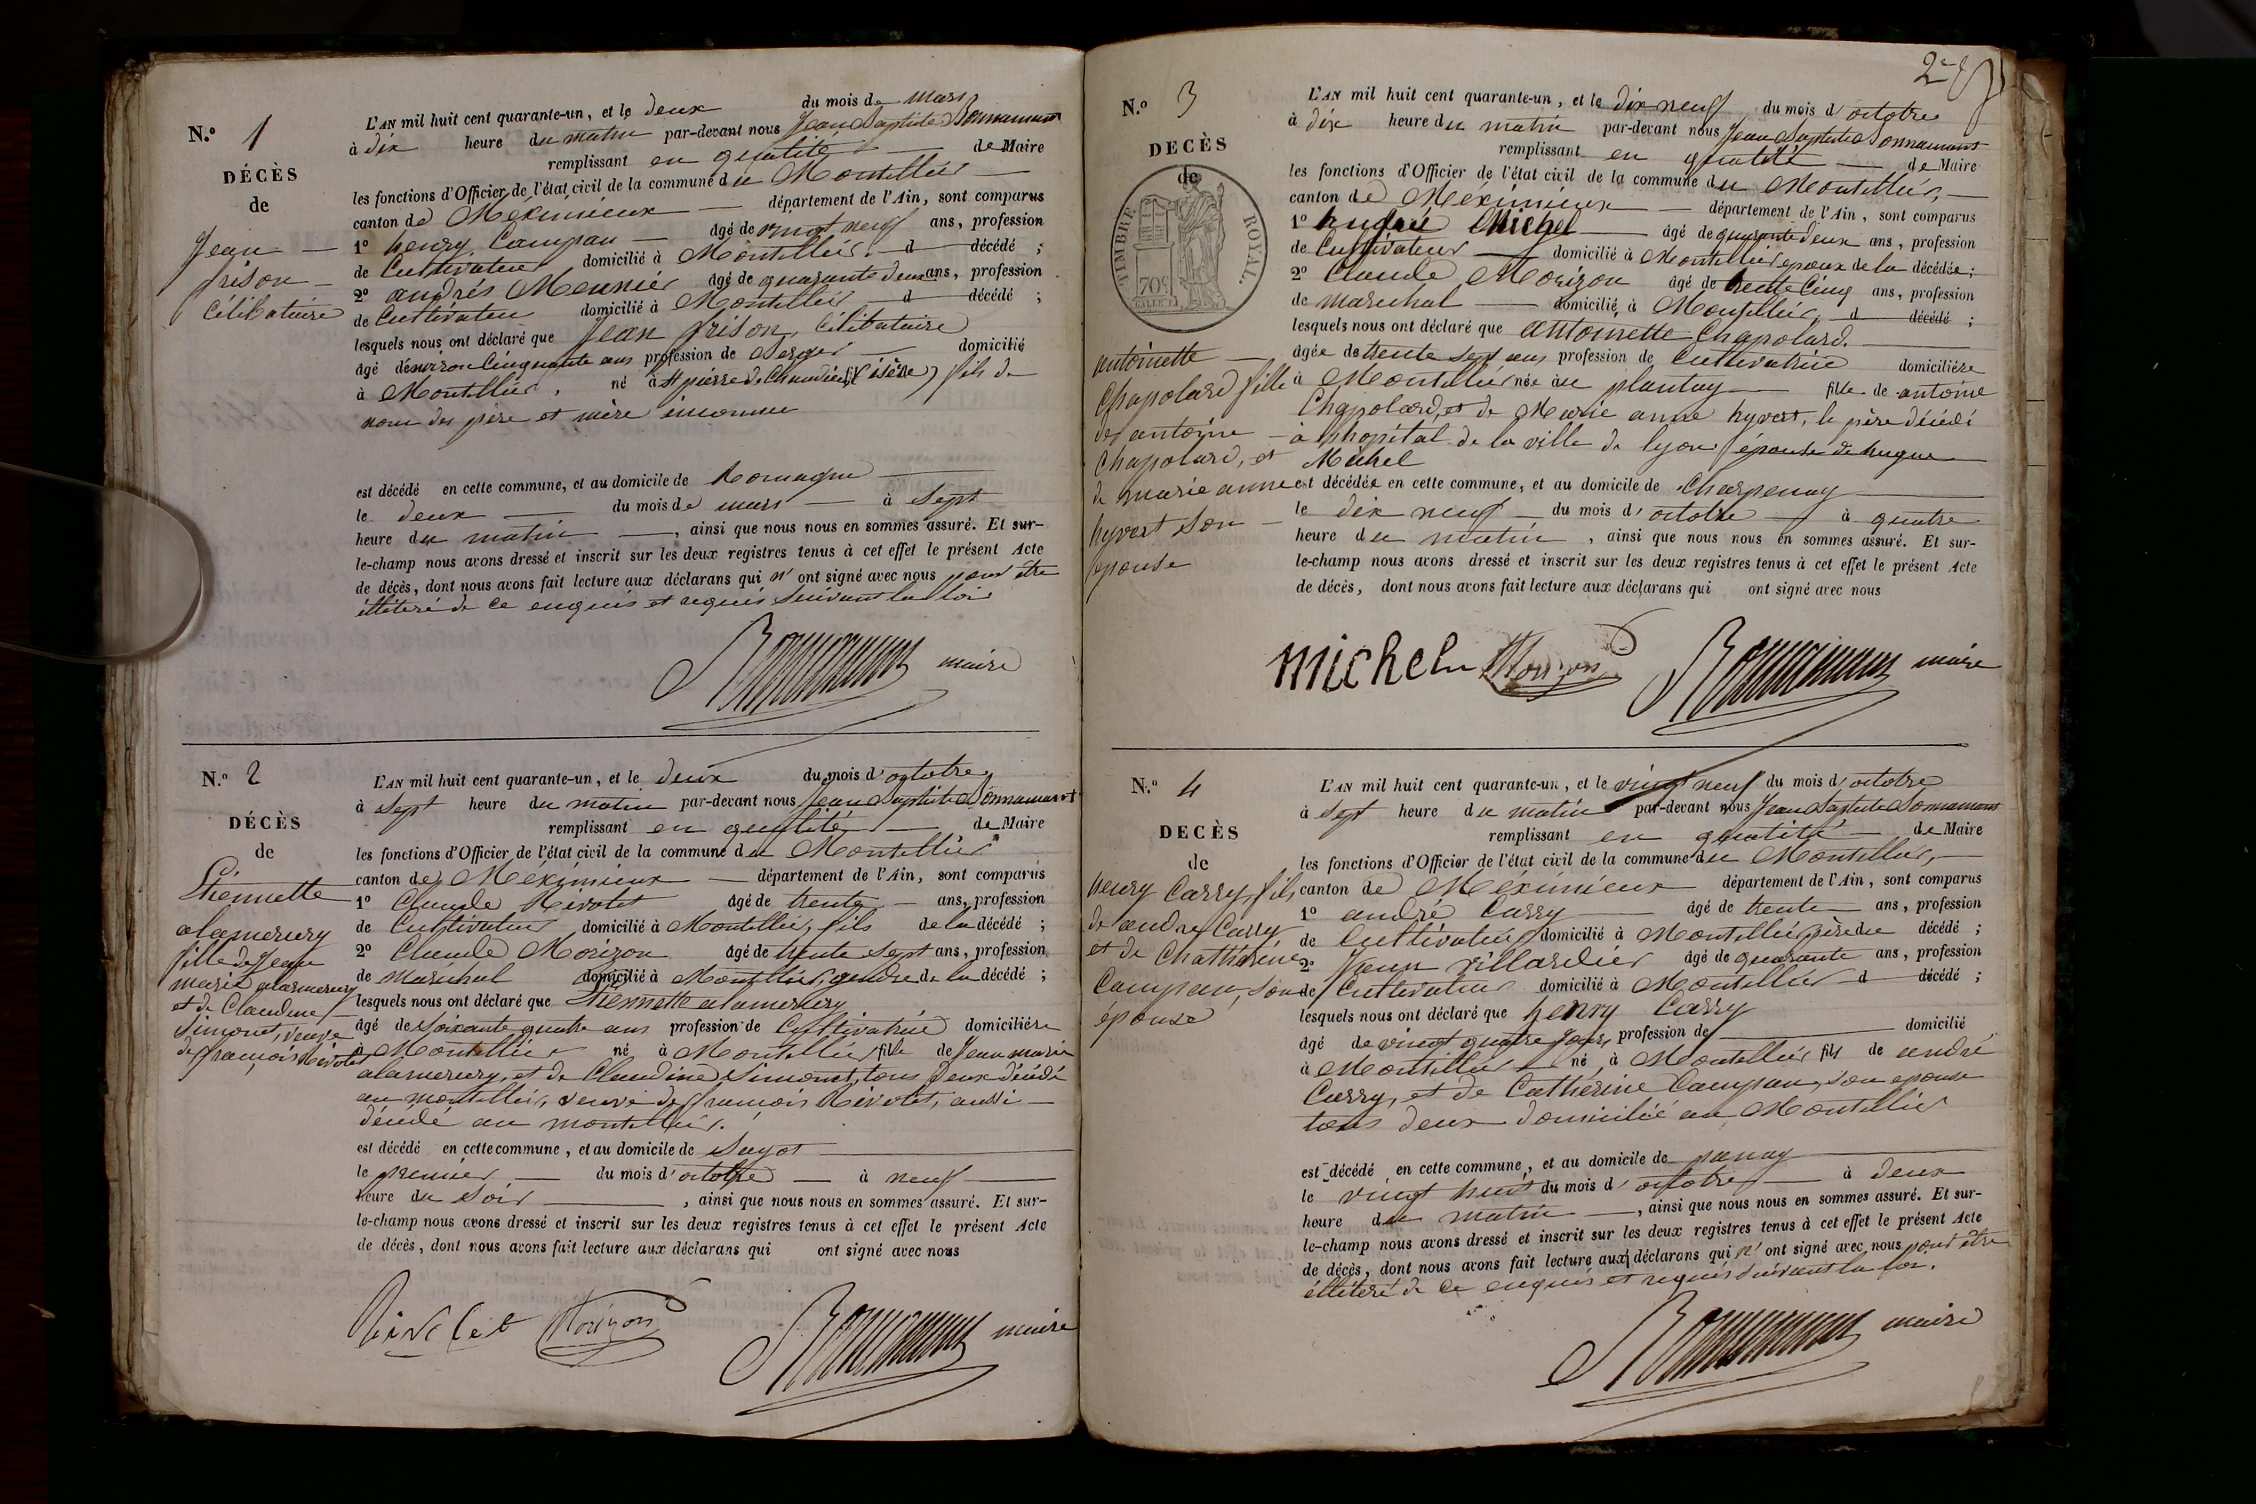 N.° 1
DÉCÈS
de
Jean
prison
Célibataire
L'AN mil huit cent quarante-un, et le deux du mois de mars
à dix heure du matin par-devant nous Jean Baptiste Bonnamant
remplissant en qualité de Maire
les fonctions d'Officier de l'état civil de la commune du Montellier
canton de Méximieux département de l'Ain, sont comparus
1° henry Campan âgé de vingt neuf ans, profession
de Cultivateur domicilié à Montellier d décédé ;
2° andrés Meunier âgé de quarante deux ans, profession
de Cultivateu domicilié à Montellier d décédé ;
lesquels nous ont déclaré que Jean prison, Célibataire
âgé d'environ Cinquante ans profession de Berger domicilié
à Montellier, né à St pierre de Chandieu (isère) fils de
nom des père et mère inconnu
est décédé en cette commune, et au domicile de Romagne
le deux du mois de mars à sept
heure du matin, ainsi que nous nous en sommes assuré. Et sur-
le-champ nous avons dressé et inscrit sur les deux registres tenus à cet effet le présent Acte
de décès, dont nous avons fait lecture aux déclarans qui n' ont signé avec nous pour être
illitéré de ce enquis et requis suivant la loi
Bonnamant maire
N.° 2
DÉCÈS
de
Etiennette
alamercery
fille de Jean
marie alamercery
et de Claudine
Simonet, veuve
de françois Rivolet
L'AN mil huit cent quarante-un, et le deux du mois d'octobre
à sept heure du matin par-devant nous Jean Baptiste Bonnamant
remplissant en qualité de Maire
les fonctions d'Officier de l'état civil de la commune du Montellier
canton de Méximieux département de l'Ain, sont comparus
1° Claude Rivolet âgé de trente ans, profession
de Cultivateur domicilié à Montellier, fils de la décédé ;
2° Claude Morizon âgé de trente sept ans, profession
de maréchal domicilié à Montellier, gendre de la décédé ;
lesquels nous ont déclaré que Etiennette alamercery
âgé de soixante quatre ans profession de Cultivatrice domiciliére
à Montellier né à Montellier fille de Jean marie
alamercery, et de Claudine Simonet, tous deux décédé
au montellier, veuve de françois Rivolet, aussi
décédé au montellier.
est décédé en cette commune, et au domicile de Sayot
le premier du mois d'octobre à neuf
heure du soir, ainsi que nous nous en sommes assuré. Et sur-
le-champ nous avons dressé et inscrit sur les deux registres tenus à cet effet le présent Acte
de décès, dont nous avons fait lecture aux déclarans qui ont signé avec nous
Rivolet Morizon Bonnamant maire
2e
N.° 3
DECÈS
de
TIMBRE ROYAL.
70c
antoinette
Chapolard fille
des antoine
Chapolard, et
de marie anne
hyvert son
épouse
L'AN mil huit cent quarante-un, et le dix neuf du mois d'octobre
à dix heure du matin par-devant nous Jean Baptiste Bonnamant
remplissant en qualité de Maire
les fonctions d'Officier de l'état civil de la commune du Montellier,
canton de Méximieux département de l'Ain, sont comparus
1° hugue Michel âgé de quarante deux ans, profession
de Cultivateur domicilié à Montellier époux de la décédée ;
2° Claude Morizon âgé de trente Cinq ans, profession
de maréchal domicilié à Montellier, d décédé ;
lesquels nous ont déclaré que antoinette Chapolard.
âgée de trente sept ans profession de Cultivatrice domiciliére
à Montellier née au plantay fille de antoine
Chapolard, et de Marie anne hyvert, le père décédé
à l'hopital de la ville de lyon, épouse de hugue
Michel
est décédée en cette commune, et au domicile de Charpenay
le dix neuf du mois d'octobre à quatre
heure du matin, ainsi que nous nous en sommes assuré. Et sur-
le-champ nous avons dressé et inscrit sur les deux registres tenus à cet effet le présent Acte
de décès, dont nous avons fait lecture aux déclarans qui ont signé avec nous
michel Morizon Bonnamant maire
N.° 4
DECÈS
de
henry Carry, fils
de andré Carry
et de Chathérine
Campan, son
épouse
L'AN mil huit cent quarante-un, et le vingt neuf du mois d'octobre
à sept heure du matin par-devant nous Jean Baptiste Bonnamant
remplissant en qualité de Maire
les fonctions d'Officier de l'état civil de la commune du Montellier,
canton de Méximieux département de l'Ain, sont comparus
1° andré Carry âgé de trente ans, profession
de Cultivateur domicilié à Montellier père du décédé ;
2° Jean villardier âgé de quarante ans, profession
de Cultivateur domicilié à Montellier d décédé ;
lesquels nous ont déclaré que henry Carry
âgé de vingt quatre jours, profession de domicilié
à Montellier né à Montellier fils de andré
Carry, et de Catherine Campan, son épouse
tous deux domicilié au Montellier
est décédé en cette commune, et au domicile de panay
le vingt huit du mois d'octobre à deux
heure du matin, ainsi que nous nous en sommes assuré. Et sur-
le-champ nous avons dressé et inscrit sur les deux registres tenus à cet effet le présent Acte
de décès, dont nous avons fait lecture aux déclarans qui n' ont signé avec nous pour être
illitéré de ce enquis et requis suivant la loi.
Bonnamant maire